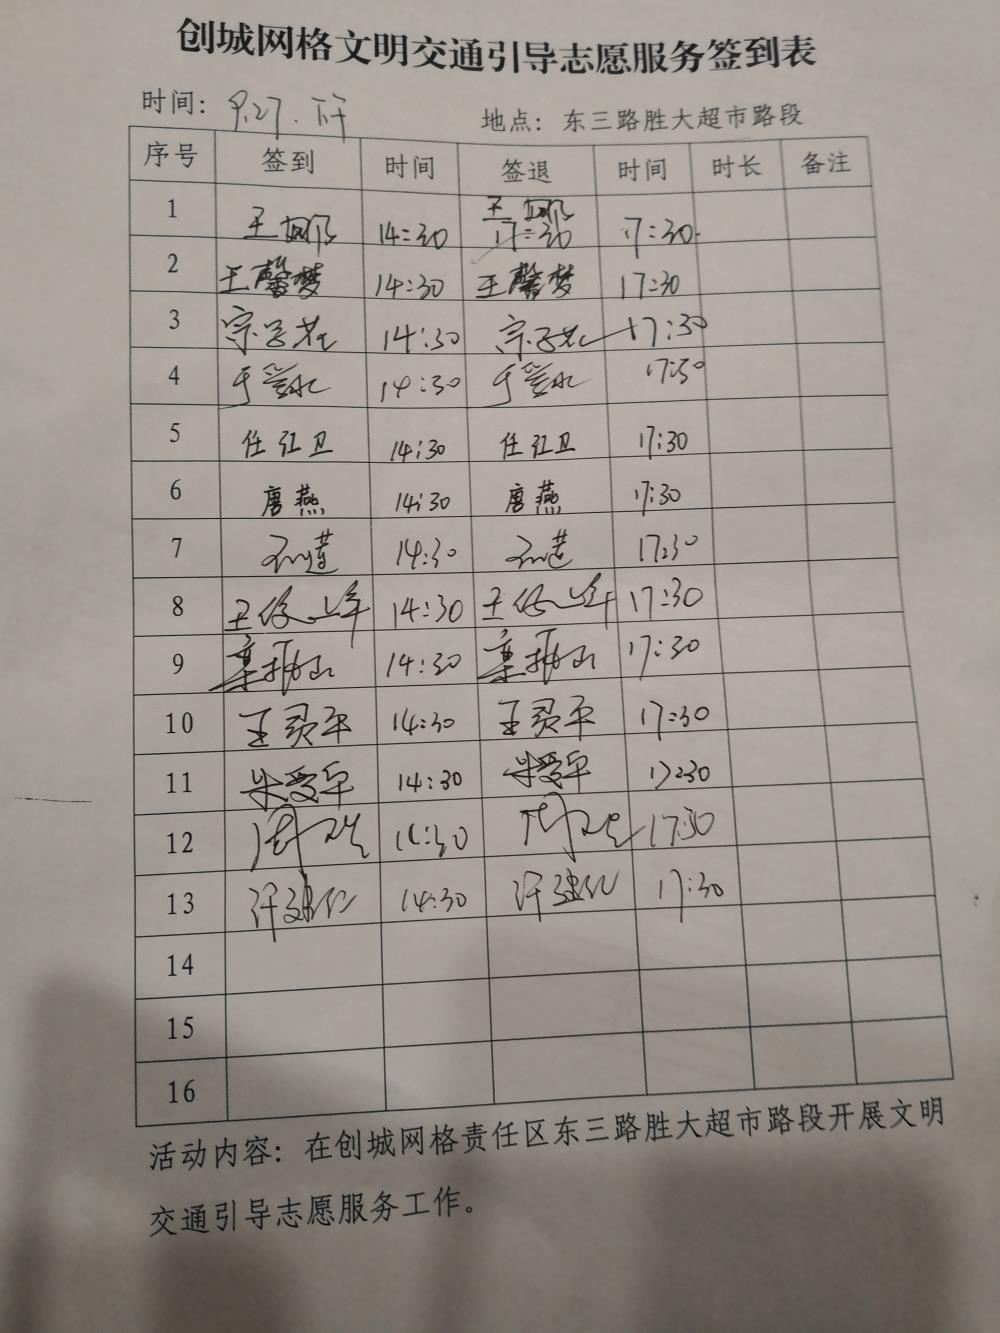 创城网格文明交通引导志愿服务签到表
时间：9.27.下午 地点：东三路胜大超市路段
序号 签到 时间 签退 时间 时长 备注
1 王娜 14:30 王娜 17:30 17:30
2 王馨梦 14:30 王馨梦 17:30
3 宗 14:30 宗 17:30
4 于爱水 14:30 于爱水 17:30
5 任红卫 14:30 任红卫 17:30
6 唐燕 14:30 唐燕 17:30
7 孙莲 14:30 孙莲 17:30
8 王 14:30 王 17:30
9 14:30 17:30
10 王灵平 14:30 王灵平 17:30
11 朱爱军 14:30 朱爱军 17:30
12 周 14:30 周 17:30
13 14:30 17:30
14
15
16
活动内容：在创城网格责任区东三路胜大超市路段开展文明
交通引导志愿服务工作。